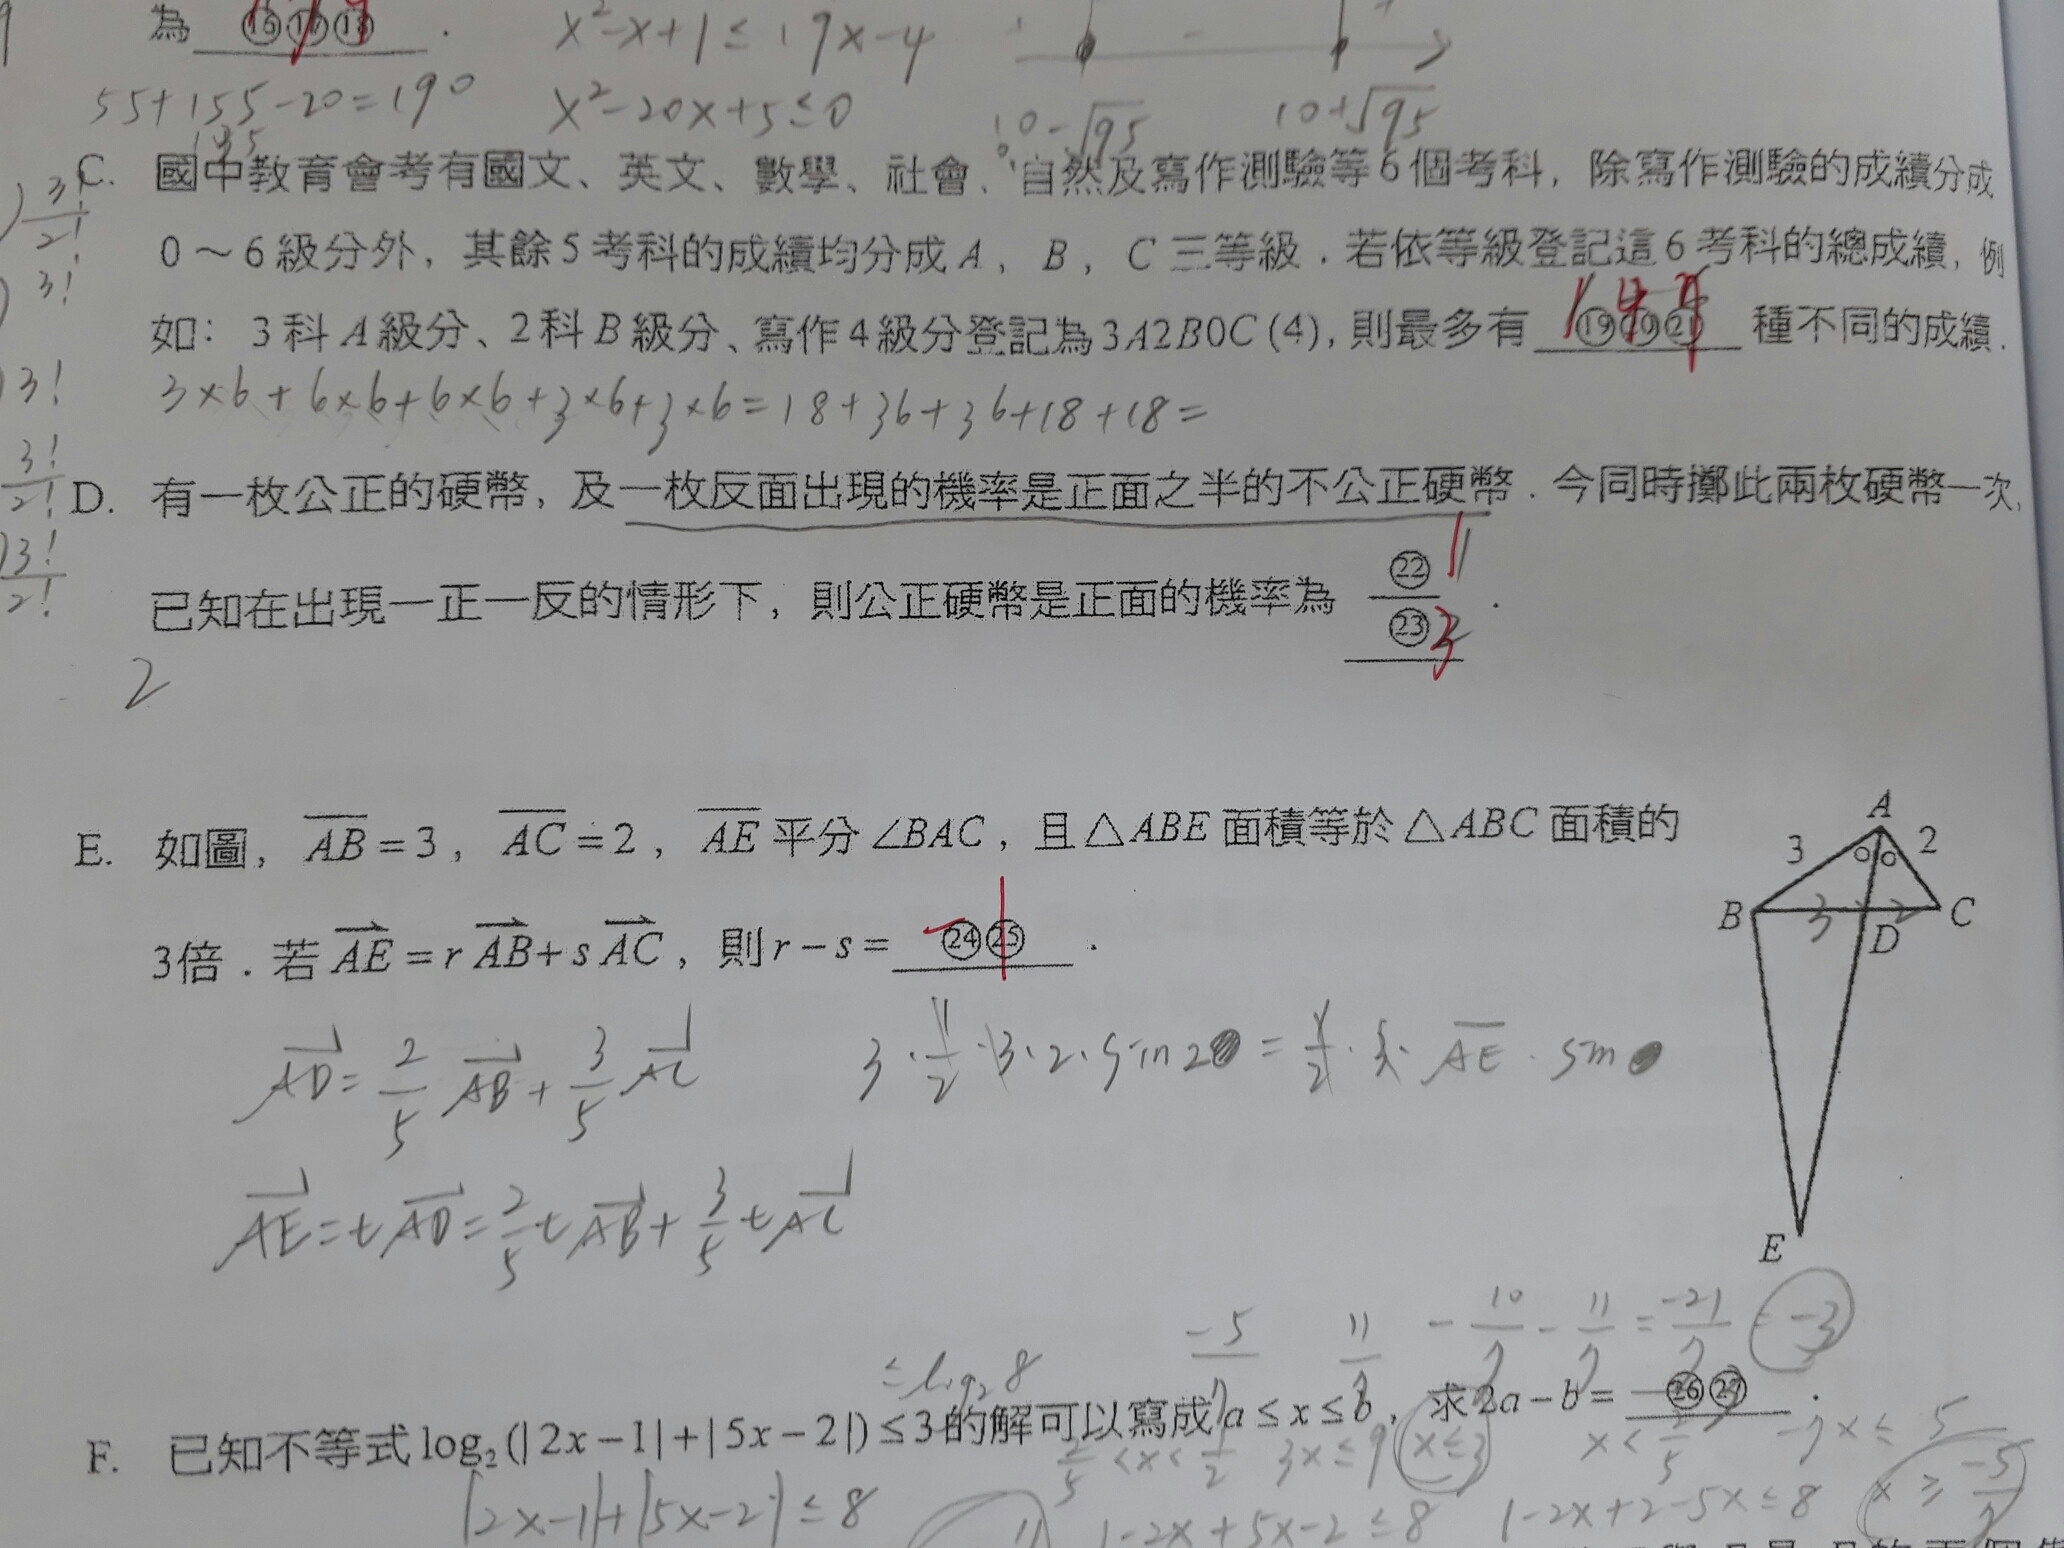 為 ⑯⑰⑱ . x²-x+1≤19x-4
55+155-20=190 x²-20x+5≤0 10-√95 10+√95
C. 國中教育會考有國文、英文、數學、社會、自然及寫作測驗等6個考科，除寫作測驗的成績分成
0～6級分外，其餘5考科的成績均分成A，B，C三等級．若依等級登記這6考科的總成績，例
如：3科A級分、2科B級分、寫作4級分登記為3A2B0C(4)，則最多有 ⑲⑳㉑ 種不同的成績．
3×6+6×6+6×6+3×6+3×6=18+36+36+18+18=
3!/2!
3!
3!
3!/2!
3!/2!
D. 有一枚公正的硬幣，及一枚反面出現的機率是正面之半的不公正硬幣．今同時擲此兩枚硬幣一次，
已知在出現一正一反的情形下，則公正硬幣是正面的機率為 ㉒ 1 / ㉓ 3 .
2
E. 如圖，AB=3，AC=2，AE平分∠BAC，且△ABE面積等於△ABC面積的
3倍．若AE=rAB+sAC，則r-s= -㉔㉕ .
A
3 2
B 3 2 C
D
E
AD=2/5 AB+3/5 AC 3·1/2·3·2·sin2 = 1/2·3·AE·sin
AE=tAD=2/5 tAB+3/5 tAC
-5/7 11/7 -10/7-11/7=-21/7=-3
≤log₂8
F. 已知不等式log₂(|2x-1|+|5x-2|)≤3的解可以寫成a≤x≤b，求2a-b= ㉖㉗ .
2/5<x<1/2 3x≤9 x≤3 x<2/5 -7x≤5
|2x-1|+|5x-2|≤8 1-2x+5x-2≤8 1-2x+2-5x≤8 x≥-5/7